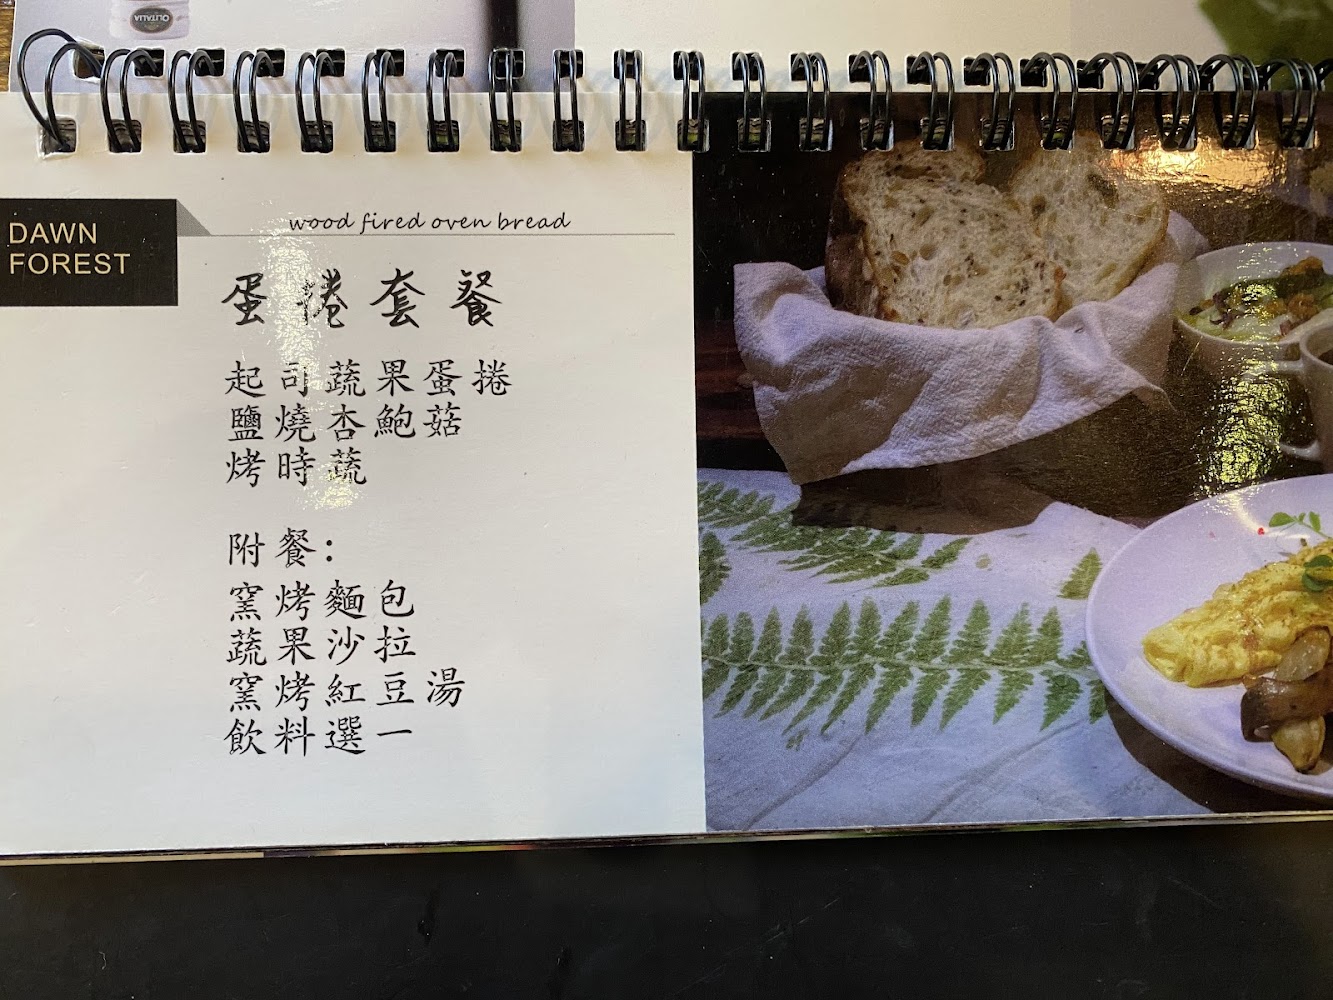 OLITALIA
DAWN
FOREST
wood fired oven bread
蛋捲套餐
起司蔬果蛋捲
鹽燒杏鮑菇
烤時蔬
附餐：
窯烤麵包
蔬果沙拉
窯烤紅豆湯
飲料選一